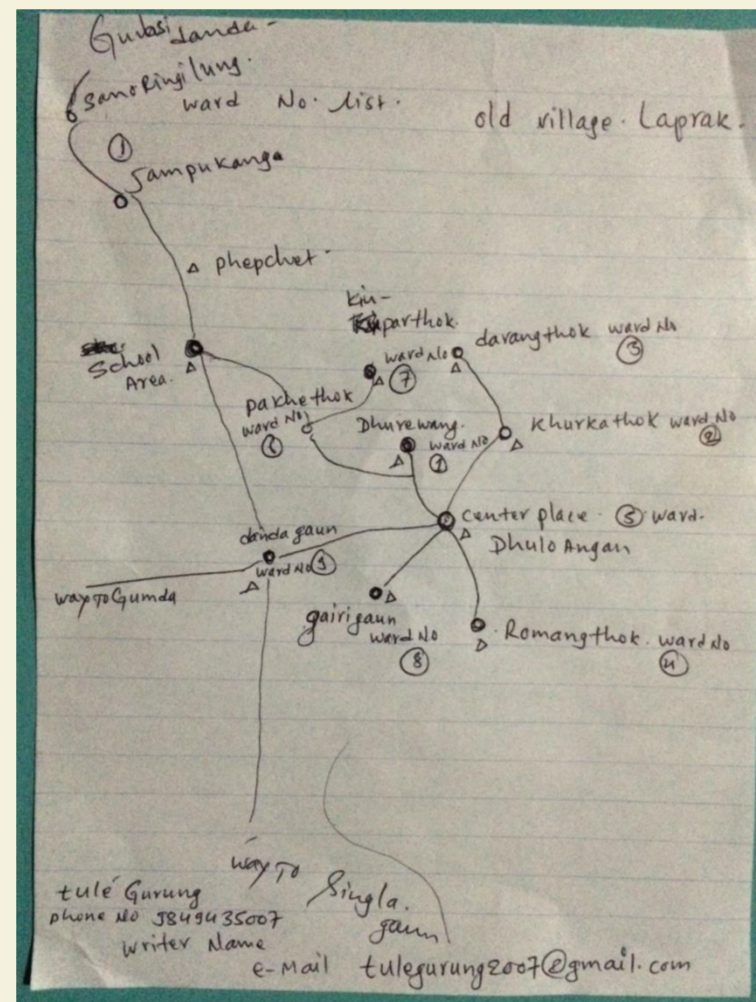 Gurbasi danda -
Sano Ringilung.
ward No. list.
old village. Laprak.
①
Sampukanga
phepchet.
kiu-
parthok.
ward No
⑦
darangthok ward No
③
School
Area.
pakhethok
ward No
⑥
Dhurewang.
ward No
①
Khurkathok ward No
②
center place. ⑤ ward.
Dhulo Angan
danda gaun
ward No ⑨
way To Gumda
gairigaun
ward No
⑧
Romangthok. ward No
④
way To
Singla.
gaun
tulé Gurung
phone No 9849435007
writer Name
e-Mail tulegurung2007@gmail.com